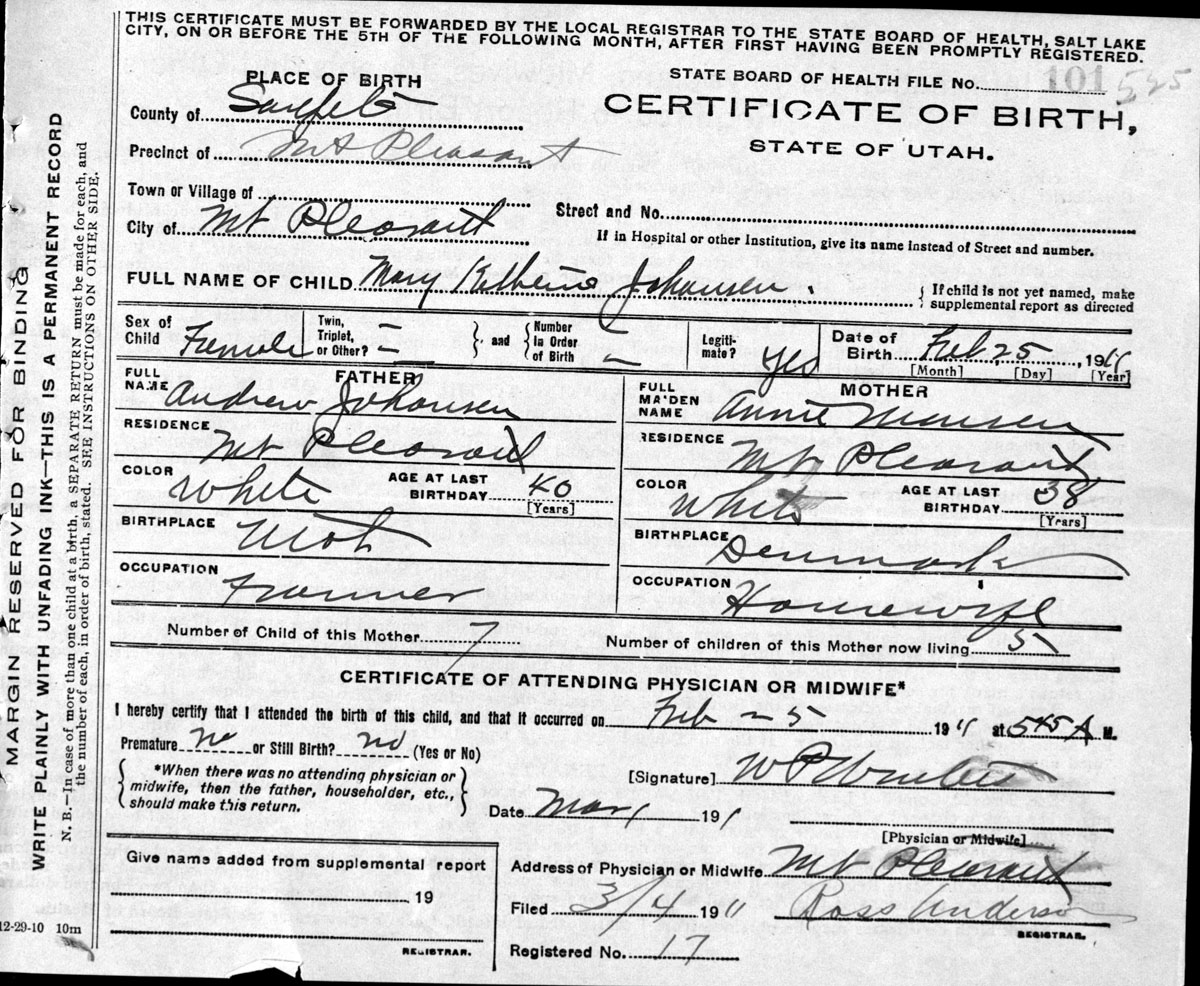 THIS CERTIFICATE MUST BE FORWARDED BY THE LOCAL REGISTRAR TO THE STATE BOARD OF HEALTH, SALT LAKE
CITY, ON OR BEFORE THE 5TH OF THE FOLLOWING MONTH, AFTER FIRST HAVING BEEN PROMPTLY REGISTERED.
PLACE OF BIRTH
STATE BOARD OF HEALTH FILE No. 101 545
County of Sanpete
CERTIFICATE OF BIRTH,
STATE OF UTAH.
Precinct of Mt Pleasant
Town or Village of
City of Mt Pleasant
Street and No.
If in Hospital or other Institution, give its name instead of Street and number.
FULL NAME OF CHILD Mary Katherine Johansen.
{ If child is not yet named, make
supplemental report as directed
Sex of Child Female
Twin, Triplet, or Other? —
} and { Number In Order of Birth —
Legiti-mate? Yes
Date of Birth Feb 25, 1911
[Month] [Day] [Year]
FATHER
FULL NAME Andrew Johansen
RESIDENCE Mt Pleasant
COLOR White
AGE AT LAST BIRTHDAY 40
[Years]
BIRTHPLACE Utah
OCCUPATION Farmer
MOTHER
FULL MAIDEN NAME Annie Monsen
RESIDENCE Mt Pleasant
COLOR White
AGE AT LAST BIRTHDAY 38
[Years]
BIRTHPLACE Denmark
OCCUPATION Housewife
Number of Child of this Mother 7
Number of children of this Mother now living 5
CERTIFICATE OF ATTENDING PHYSICIAN OR MIDWIFE*
I hereby certify that I attended the birth of this child, and that it occurred on Feb 25 1911 at 545 A M.
Premature no or Still Birth? no (Yes or No)
{ *When there was no attending physician or
midwife, then the father, householder, etc.,
should make this return. }
[Signature] W P
Date Mar 1 191
[Physician or Midwife]
Give name added from supplemental report
19
REGISTRAR.
Address of Physician or Midwife Mt Pleasant
Filed 3/4 1911 Ross Anderson
REGISTRAR.
Registered No. 17
12-29-10 10m
MARGIN RESERVED FOR BINDING
WRITE PLAINLY WITH UNFADING INK—THIS IS A PERMANENT RECORD
N. B.—In case of more than one child at a birth, a SEPARATE RETURN must be made for each, and
the number of each, in order of birth, stated. SEE INSTRUCTIONS ON OTHER SIDE.